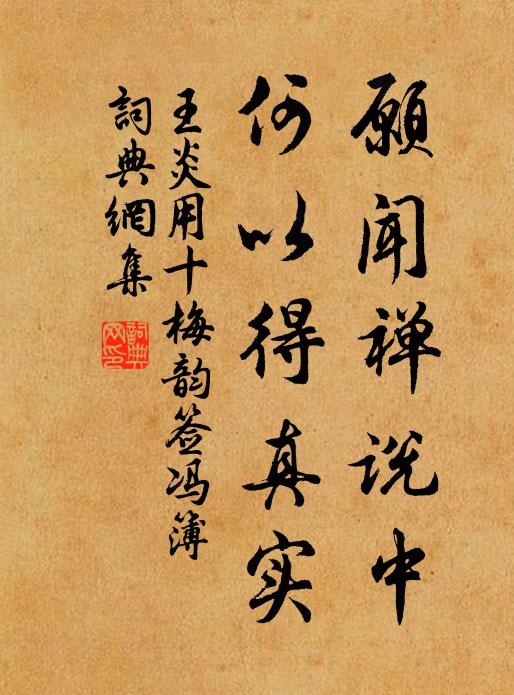 願闻禅说中
何以得真实
王炎用十梅韵签冯簿
詞典網集
詞典网印